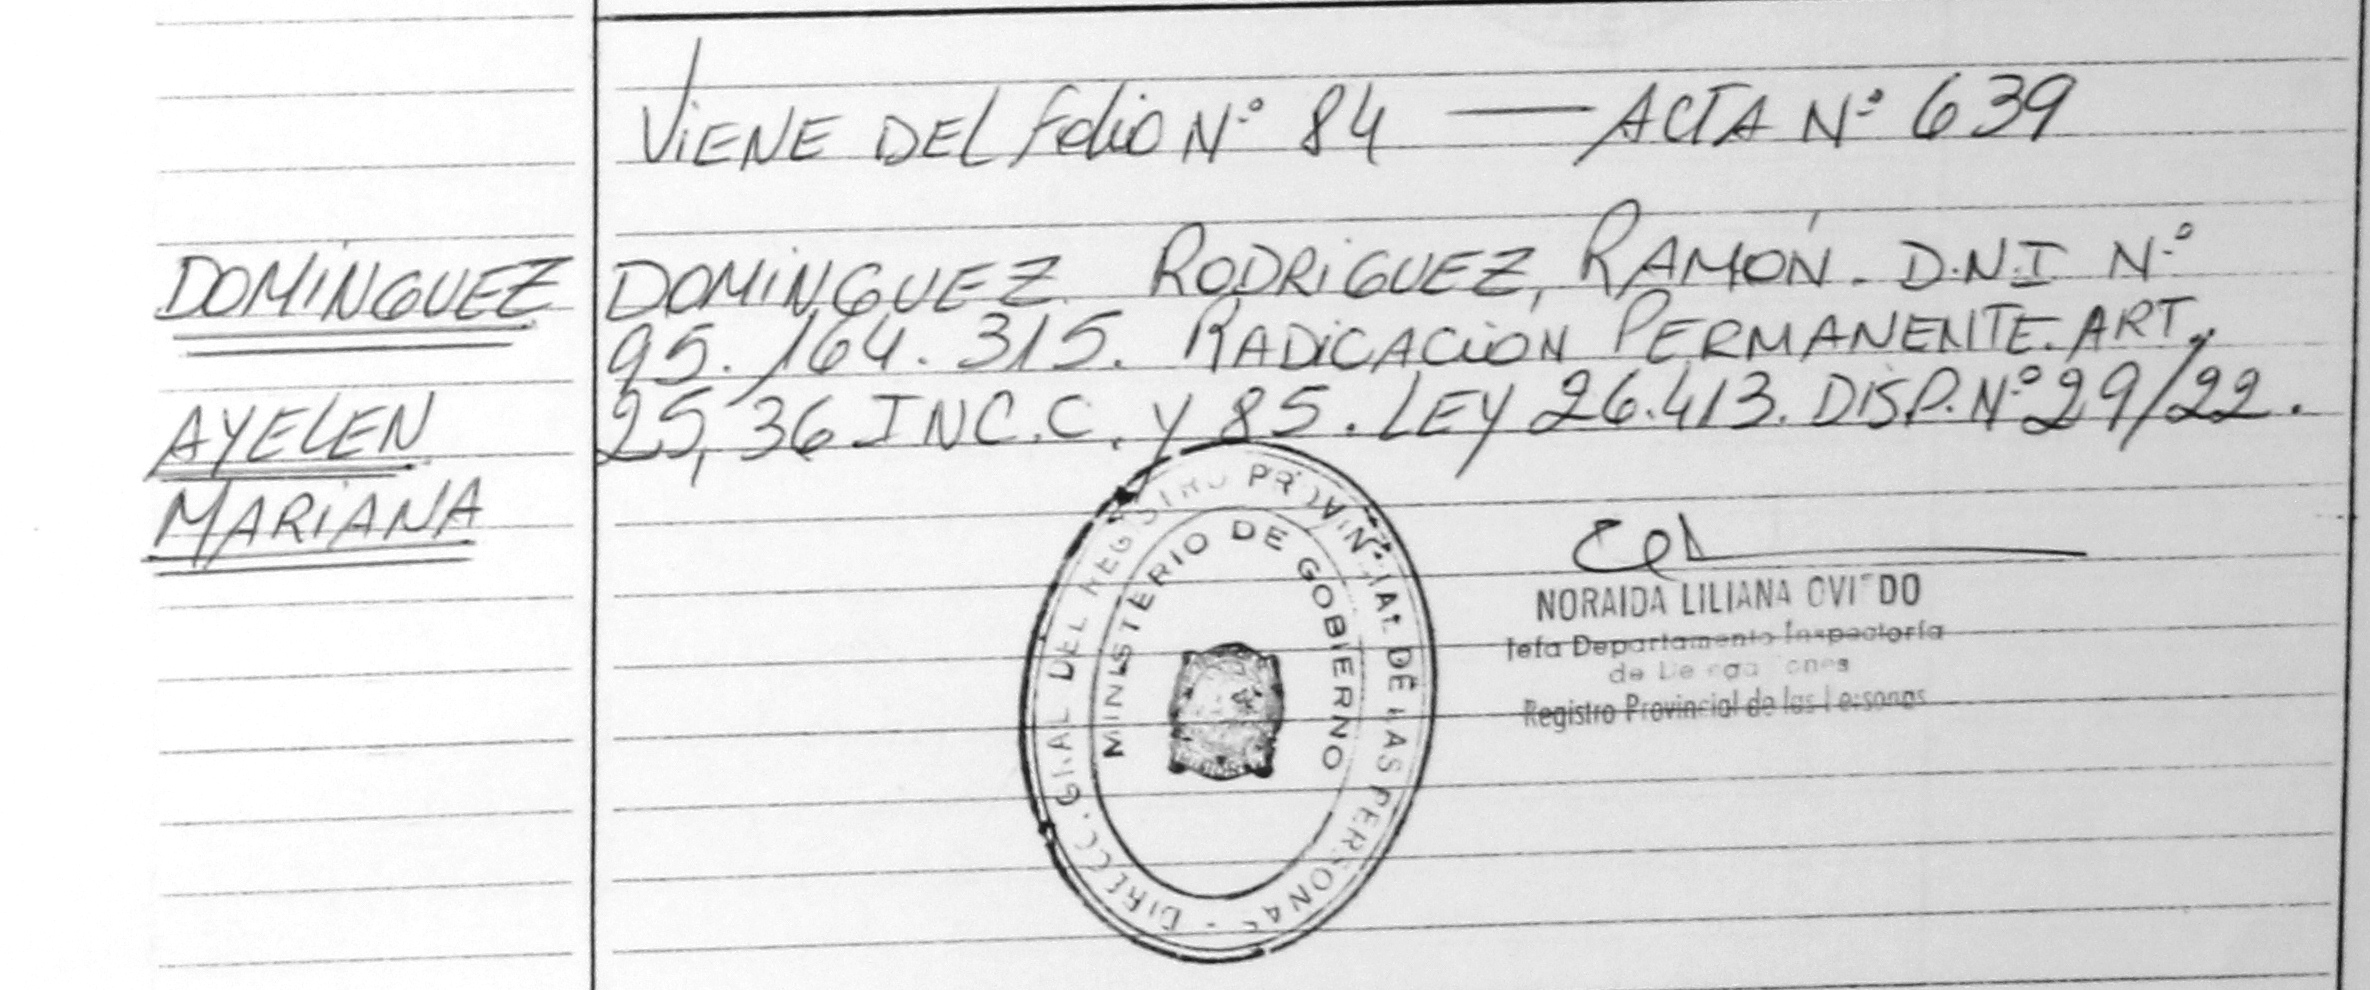 VIENE DEL Folio Nº 84 — ACTA Nº 639
DOMÍNGUEZ
AYELEN
MARIANA
DOMINGUEZ RODRIGUEZ, RAMÓN. D.N.I Nº
95.164.315. RADICACIÓN PERMANENTE. ART.
25, 36 INC. C. Y 85. LEY 26.413. DISP. Nº 29/22.
DIRECC. GRAL DEL REGISTRO PROVINCIAL DE LAS PERSONAS -
MINISTERIO DE GOBIERNO
NORAIDA LILIANA OVIEDO
Jefa Departamento Inspectoría
de Delegaciones
Registro Provincial de las Personas